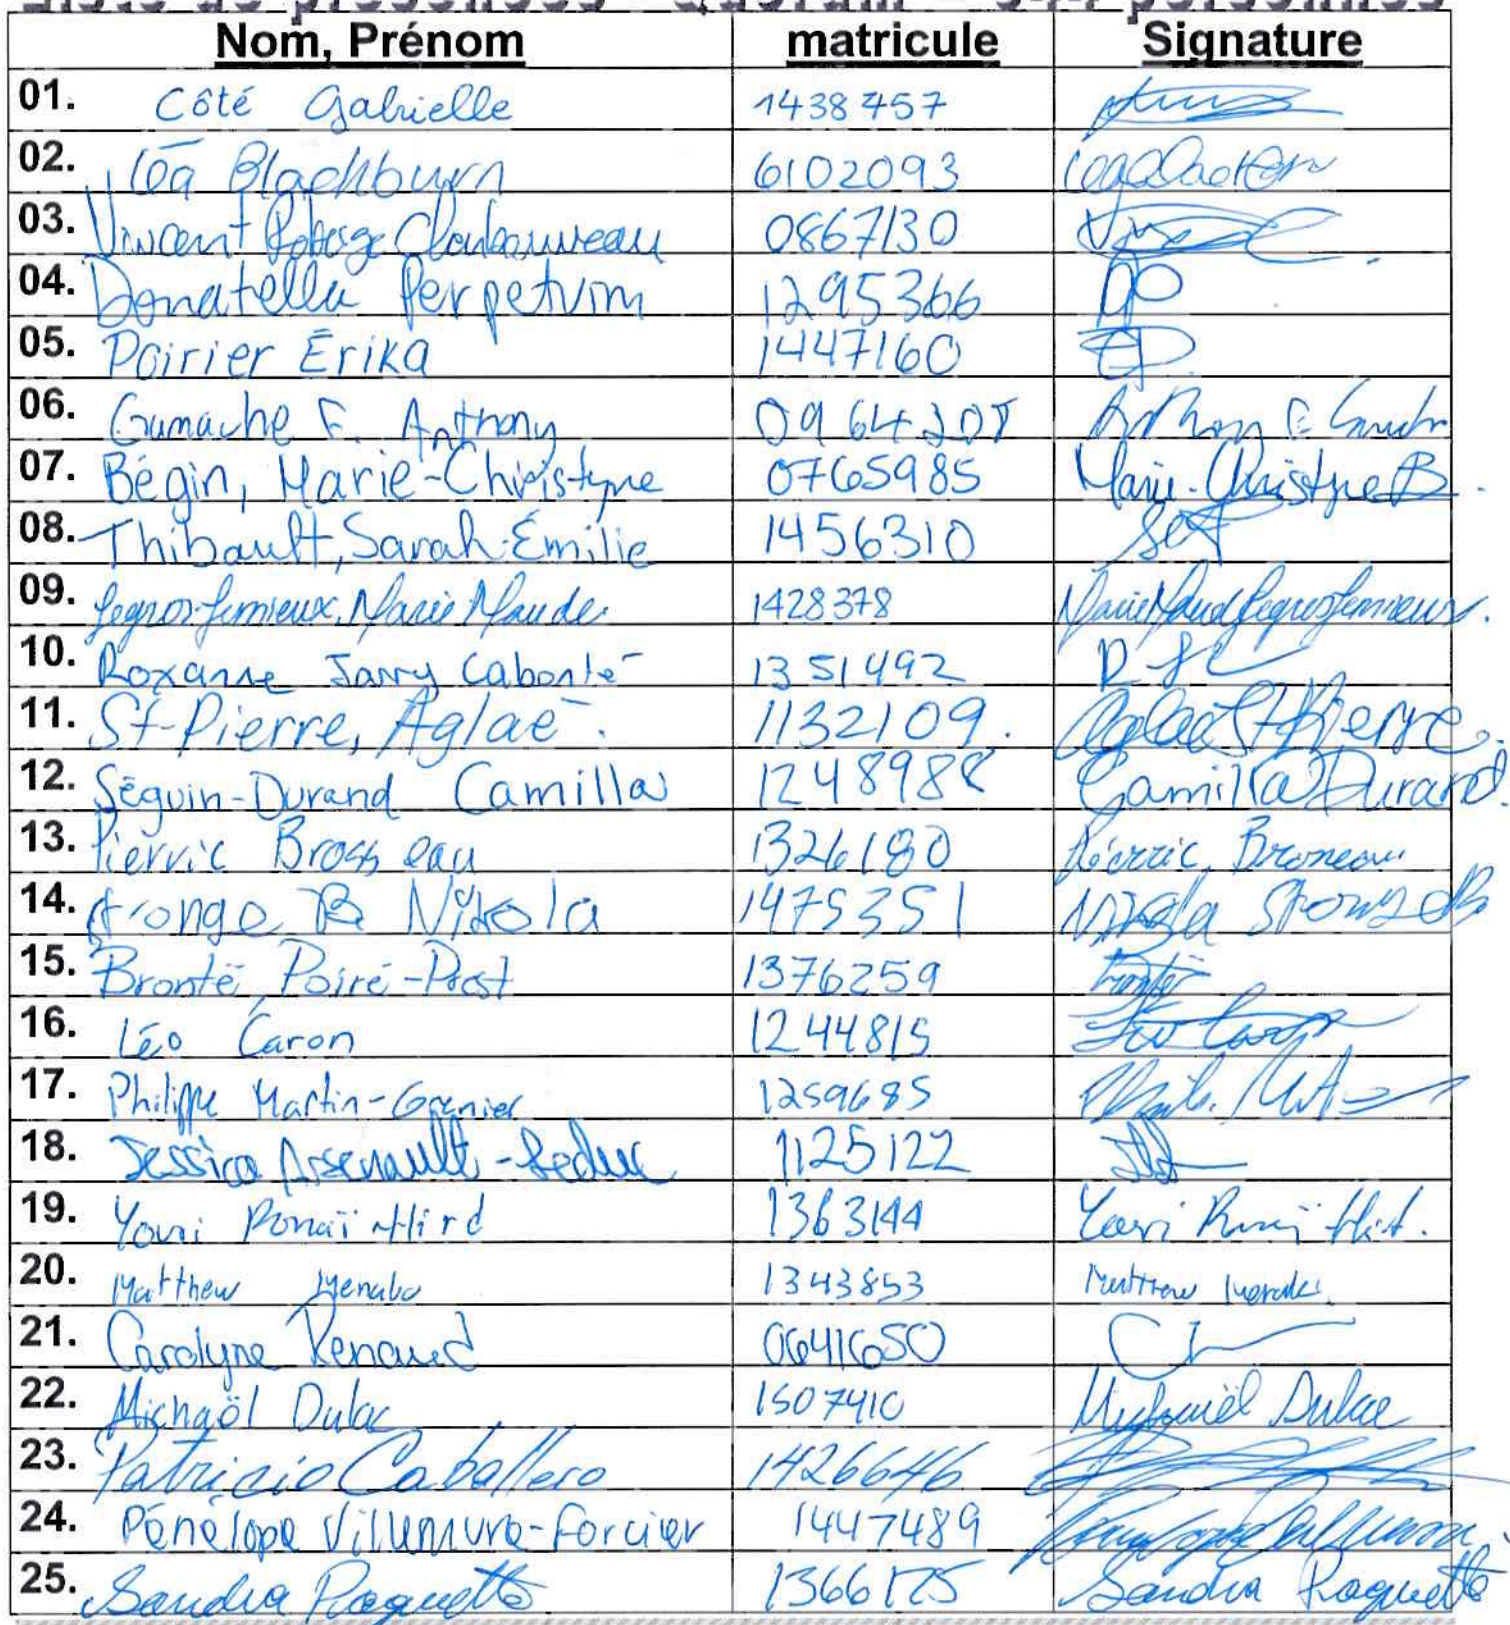 Liste de présences - Quorum - 344 personnes
Nom, Prénom matricule Signature
01. Côté Gabrielle 1438457
02. Léa Blackburn 6102093
03. Vincent Charbonneau 0867130
04. Donatella Perpetvm 1295366 DP
05. Poirier Érika 1447160 EP
06. Gamache F. Anthony 0964208 Anthony
07. Bégin, Marie-Christyne 0765985 Marie-Christyne B.
08. Thibault, Sarah-Émilie 1456310 SET
09. Legros-Lemieux, Marie Maude 1428378 Marie Maude Legros Lemieux.
10. Roxanne Jarry Labonté 1351492 RJL
11. St-Pierre, Aglaé. 1132109. Aglaé St-Pierre.
12. Séguin-Durand Camilla 1248988 Camilla Durand.
13. Pierric Brosseau 1326180 Pierric
14. Nikola 1475351 Nikola
15. Brontë Poiré-Prest 1376259 Brontë
16. Léo Caron 1244815 Léo Caron
17. Philippe Martin-Grenier 1259685
18. Jessica Arsenault-Leduc 1125122
19. Youri Ponaï-Hird 1363144 Youri
20. Matthew 1343853 Matthew
21. Carolyne Renaud 0641650
22. Michaël Dulac 1507410 Dulac
23. Patricio Caballero 1426646
24. Pénélope Villemure-Forcier 1447489
25. Sandra Paquette 1366175 Sandra Paquette